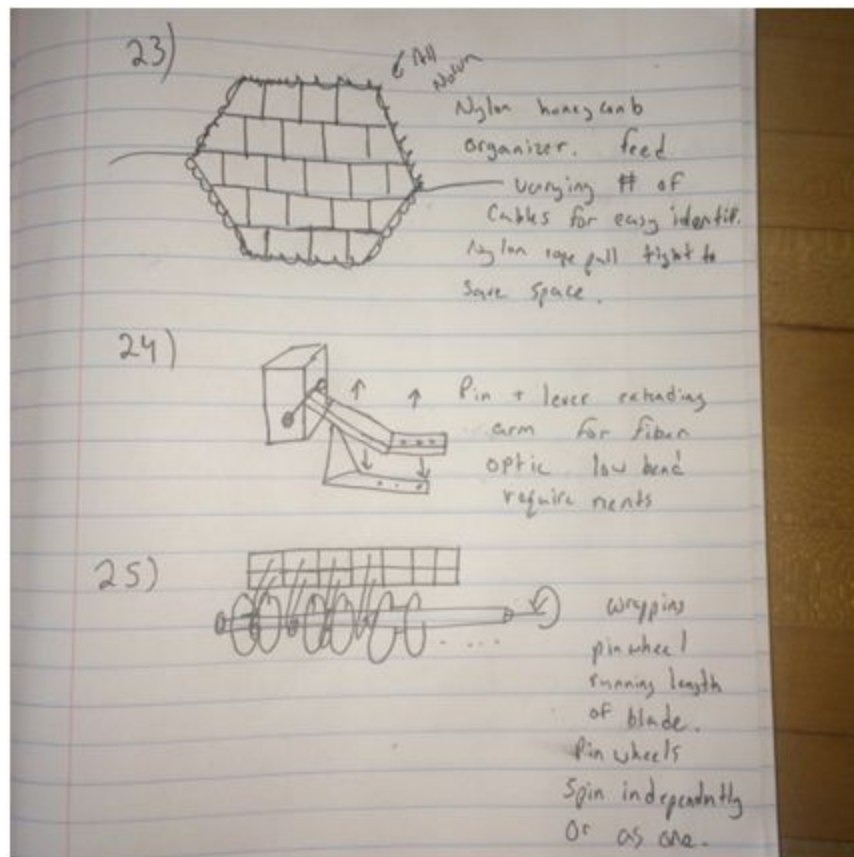 23)
All
Nylon
Nylon honeycomb
organizer. feed
varying # of
Cables for easy identif.
Nylon rope pull tight to
save space.
24)
Pin + lever extending
arm for fiber
optic low bend
requirements
25)
wrapping
pinwheel
running length
of blade.
Pinwheels
Spin independntly
or as one.